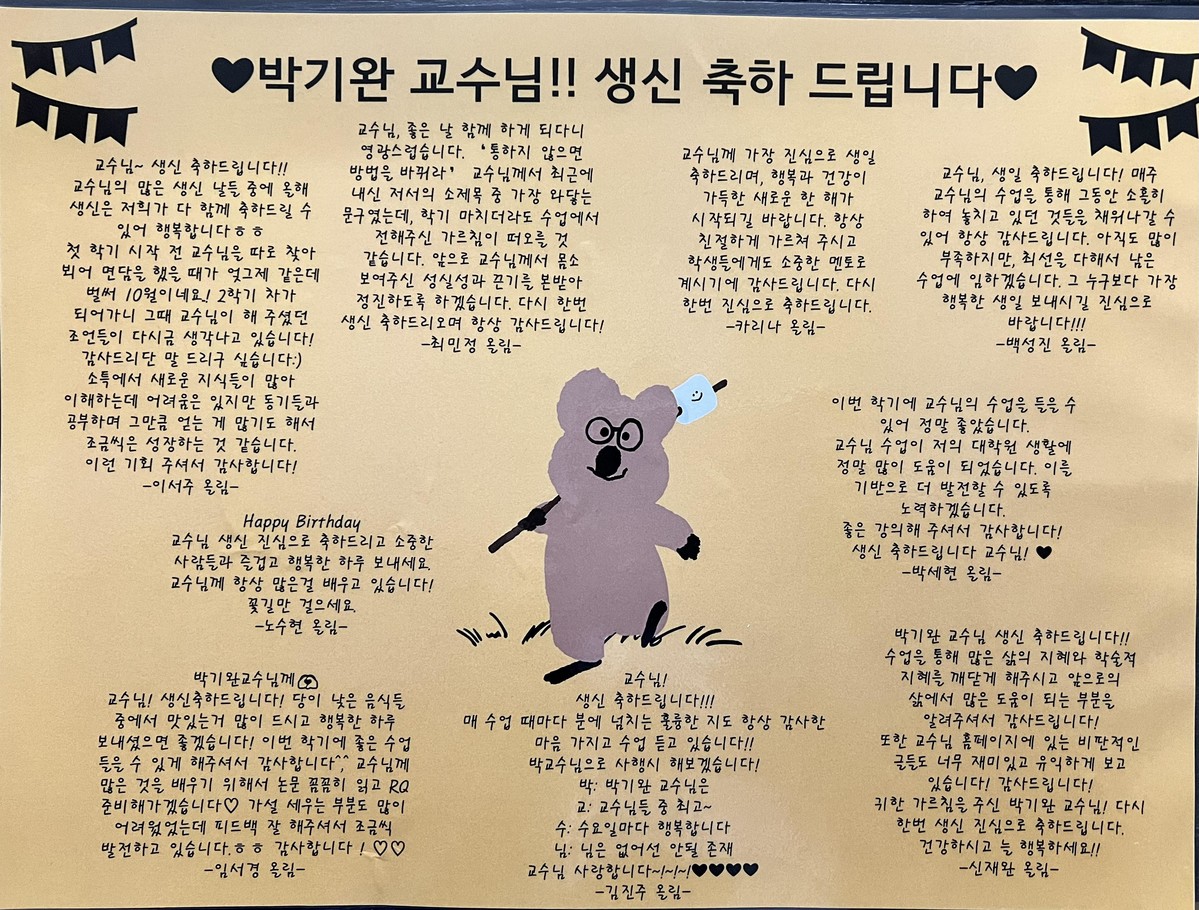 ♥박기완 교수님!! 생신 축하 드립니다♥
교수님~ 생신 축하드립니다!!
교수님의 많은 생신 날들 중에 올해
생신은 저희가 다 함께 축하드릴 수
있어 행복합니다ㅎㅎ
첫 학기 시작 전 교수님을 따로 찾아
뵈어 면담을 했을 때가 엊그제 같은데
벌써 10월이네요! 2학기 차가
되어가니 그때 교수님이 해 주셨던
조언들이 다시금 생각나고 있습니다!
감사드리단 말 드리구 싶습니다:)
소특에서 새로운 지식들이 많아
이해하는데 어려움은 있지만 동기들과
공부하며 그만큼 얻는 게 많기도 해서
조금씩은 성장하는 것 같습니다.
이런 기회 주셔서 감사합니다!
-이서주 올림-
교수님, 좋은 날 함께 하게 되다니
영광스럽습니다. '통하지 않으면
방법을 바꿔라' 교수님께서 최근에
내신 저서의 소제목 중 가장 와닿는
문구였는데, 학기 마치더라도 수업에서
전해주신 가르침이 떠오를 것
같습니다. 앞으로 교수님께서 몸소
보여주신 성실성과 끈기를 본받아
정진하도록 하겠습니다. 다시 한번
생신 축하드리오며 항상 감사드립니다!
-최민정 올림-
교수님께 가장 진심으로 생일
축하드리며, 행복과 건강이
가득한 새로운 한 해가
시작되길 바랍니다. 항상
친절하게 가르쳐 주시고
학생들에게도 소중한 멘토로
계시기에 감사드립니다. 다시
한번 진심으로 축하드립니다.
-카리나 올림-
교수님, 생일 축하드립니다! 매주
교수님의 수업을 통해 그동안 소홀히
하여 놓치고 있던 것들을 채워나갈 수
있어 항상 감사드립니다. 아직도 많이
부족하지만, 최선을 다해서 남은
수업에 임하겠습니다. 그 누구보다 가장
행복한 생일 보내시길 진심으로
바랍니다!!!
-백성진 올림-
이번 학기에 교수님의 수업을 들을 수
있어 정말 좋았습니다.
교수님 수업이 저의 대학원 생활에
정말 많이 도움이 되었습니다. 이를
기반으로 더 발전할 수 있도록
노력하겠습니다.
좋은 강의해 주셔서 감사합니다!
생신 축하드립니다 교수님! ♥
-박세현 올림-
Happy Birthday
교수님 생신 진심으로 축하드리고 소중한
사람들과 즐겁고 행복한 하루 보내세요.
교수님께 항상 많은걸 배우고 있습니다!
꽃길만 걸으세요.
-노수현 올림-
박기완교수님께
교수님! 생신축하드립니다! 당이 낮은 음식들
중에서 맛있는거 많이 드시고 행복한 하루
보내셨으면 좋겠습니다! 이번 학기에 좋은 수업
들을 수 있게 해주셔서 감사합니다^^ 교수님께
많은 것을 배우기 위해서 논문 꼼꼼히 읽고 RQ
준비해가겠습니다♡ 가설 세우는 부분도 많이
어려웠었는데 피드백 잘 해주셔서 조금씩
발전하고 있습니다.ㅎㅎ 감사합니다 ! ♡♡
-임서경 올림-
교수님!
생신 축하드립니다!!!
매 수업 때마다 분에 넘치는 훌륭한 지도 항상 감사한
마음 가지고 수업 듣고 있습니다!!
박교수님으로 사행시 해보겠습니다!
박: 박기완 교수님은
교: 교수님들 중 최고~
수: 수요일마다 행복합니다
님: 님은 없어선 안될 존재
교수님 사랑합니다~!~!~!♥♥♥♥
-김진주 올림-
박기완 교수님 생신 축하드립니다!!
수업을 통해 많은 삶의 지혜와 학술적
지혜를 깨닫게 해주시고 앞으로의
삶에서 많은 도움이 되는 부분을
알려주셔서 감사드립니다!
또한 교수님 홈페이지에 있는 비판적인
글들도 너무 재미있고 유익하게 보고
있습니다! 감사드립니다!
귀한 가르침을 주신 박기완 교수님! 다시
한번 생신 진심으로 축하드립니다.
건강하시고 늘 행복하세요!!
-신재완 올림-